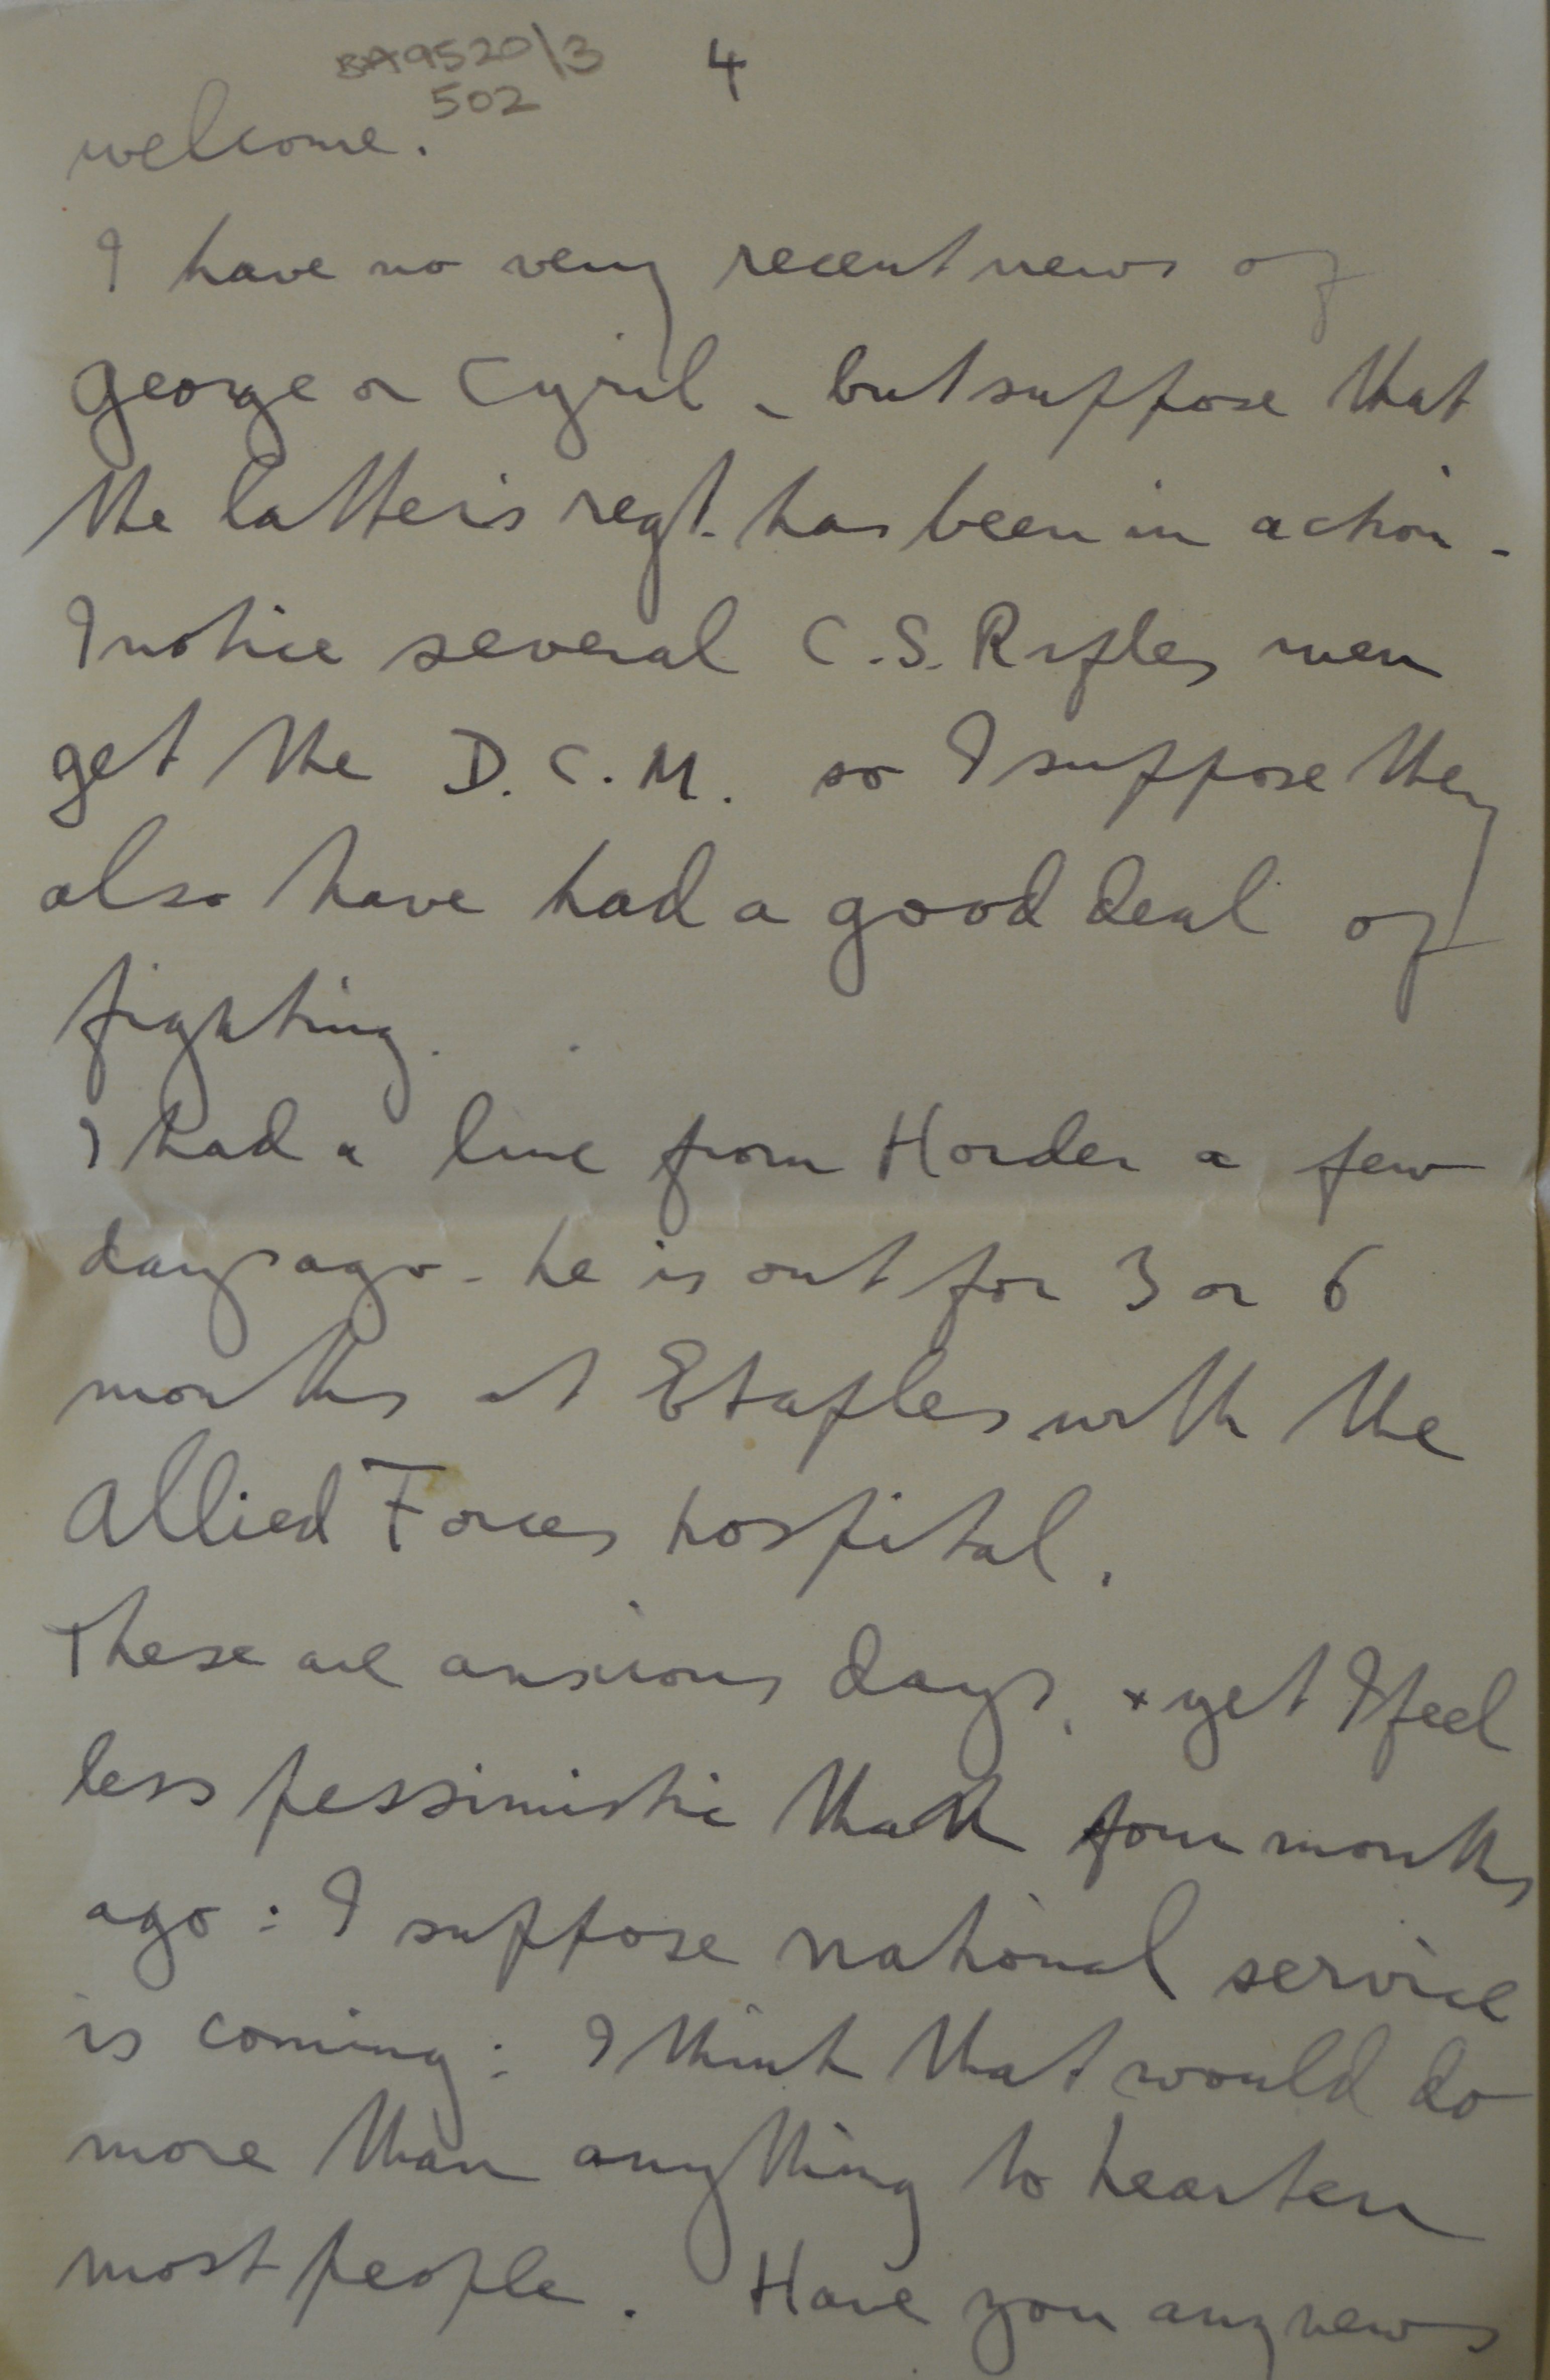 BA9520/3 4
502
welcome.
I have no very recent news of
George or Cyril - but suppose that
the latter's regt. has been in action -
I notice several C.S. Rifles men
get the D.C.M. so I suppose they
also have had a good deal of
fighting.
I had a line from Horder a few
days ago - he is out for 3 or 6
months at Etaples with the
Allied Forces hospital.
These are anxious days, + yet I feel
less pessimistic than four months
ago : I suppose national service
is coming : I think that would do
more than anything to hearten
most people. Have you any news